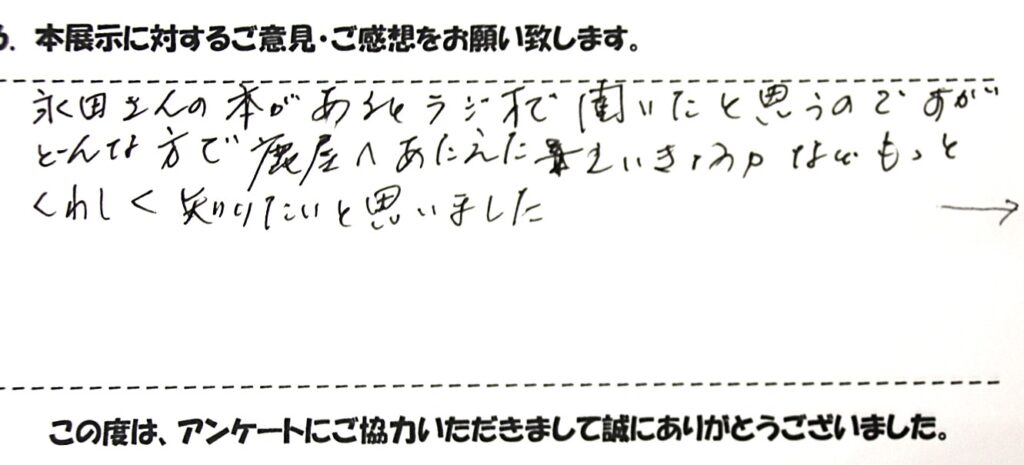 6. 本展示に対するご意見・ご感想をお願い致します。
永田さんの本があるとラジオで聞いたと思うのですが
どんな方で鹿屋へあたえたえいきょうかなどもっと
くわしく知りたいと思いました
→
この度は、アンケートにご協力いただきまして誠にありがとうございました。